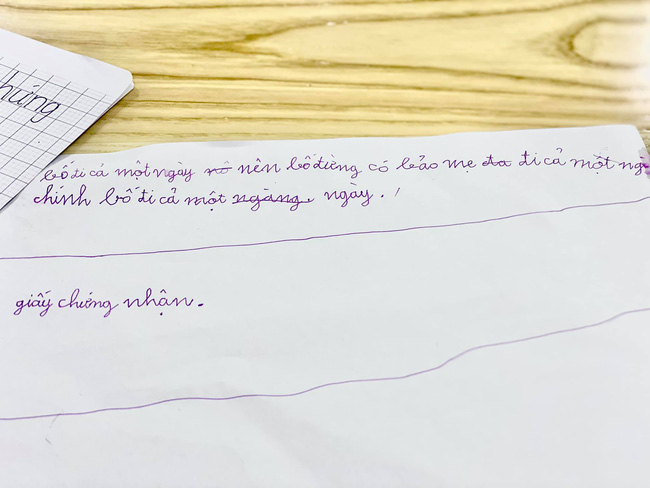 hứng
bố đi cả một ngày nên bố đừng có bảo mẹ đa đi cả một ngà
chính bố đi cả một ngàng, ngày.
giấy chứng nhận.